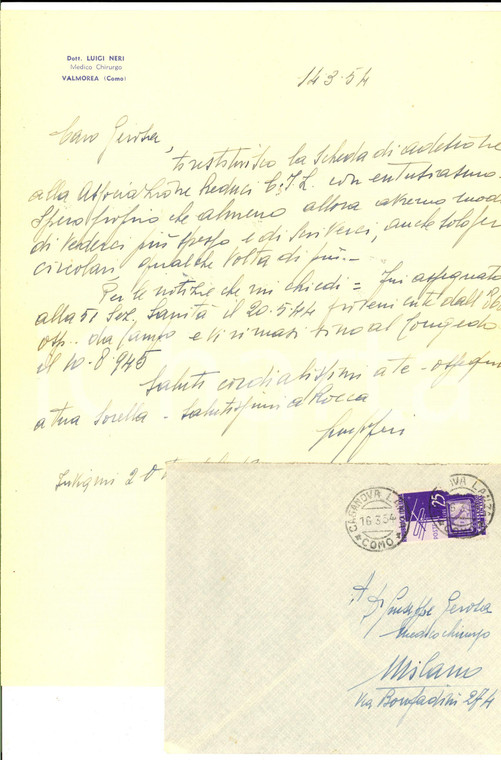 Dott. LUIGI NERI
Medico Chirurgo
VALMOREA (Como)
14 3 54
Caro Gerosa,
ti restituisco la scheda di adesione
alla Associazione Reduci C.I.L. con entusiasmo.
Spero proprio che almeno allora avremo modo
di vederci più spesso e di scriverci, anche solo per
circolari qualche volta di più.-
Per le notizie che mi chiedi = Fui assegnato
alla 51 Sez. Sanità il 20.5.44 proveniente dall'
osp. da campo e vi rimasi sino al congedo
il 10-8-945
Saluti cordialissimi a te - ossequi
a tua Sorella - salutissimi a Rocca
CASANOVA LANZA
16.3.54
COMO
25
Dr Giuseppe Gerosa
medico chirurgo
Milano
Via Bonfadini